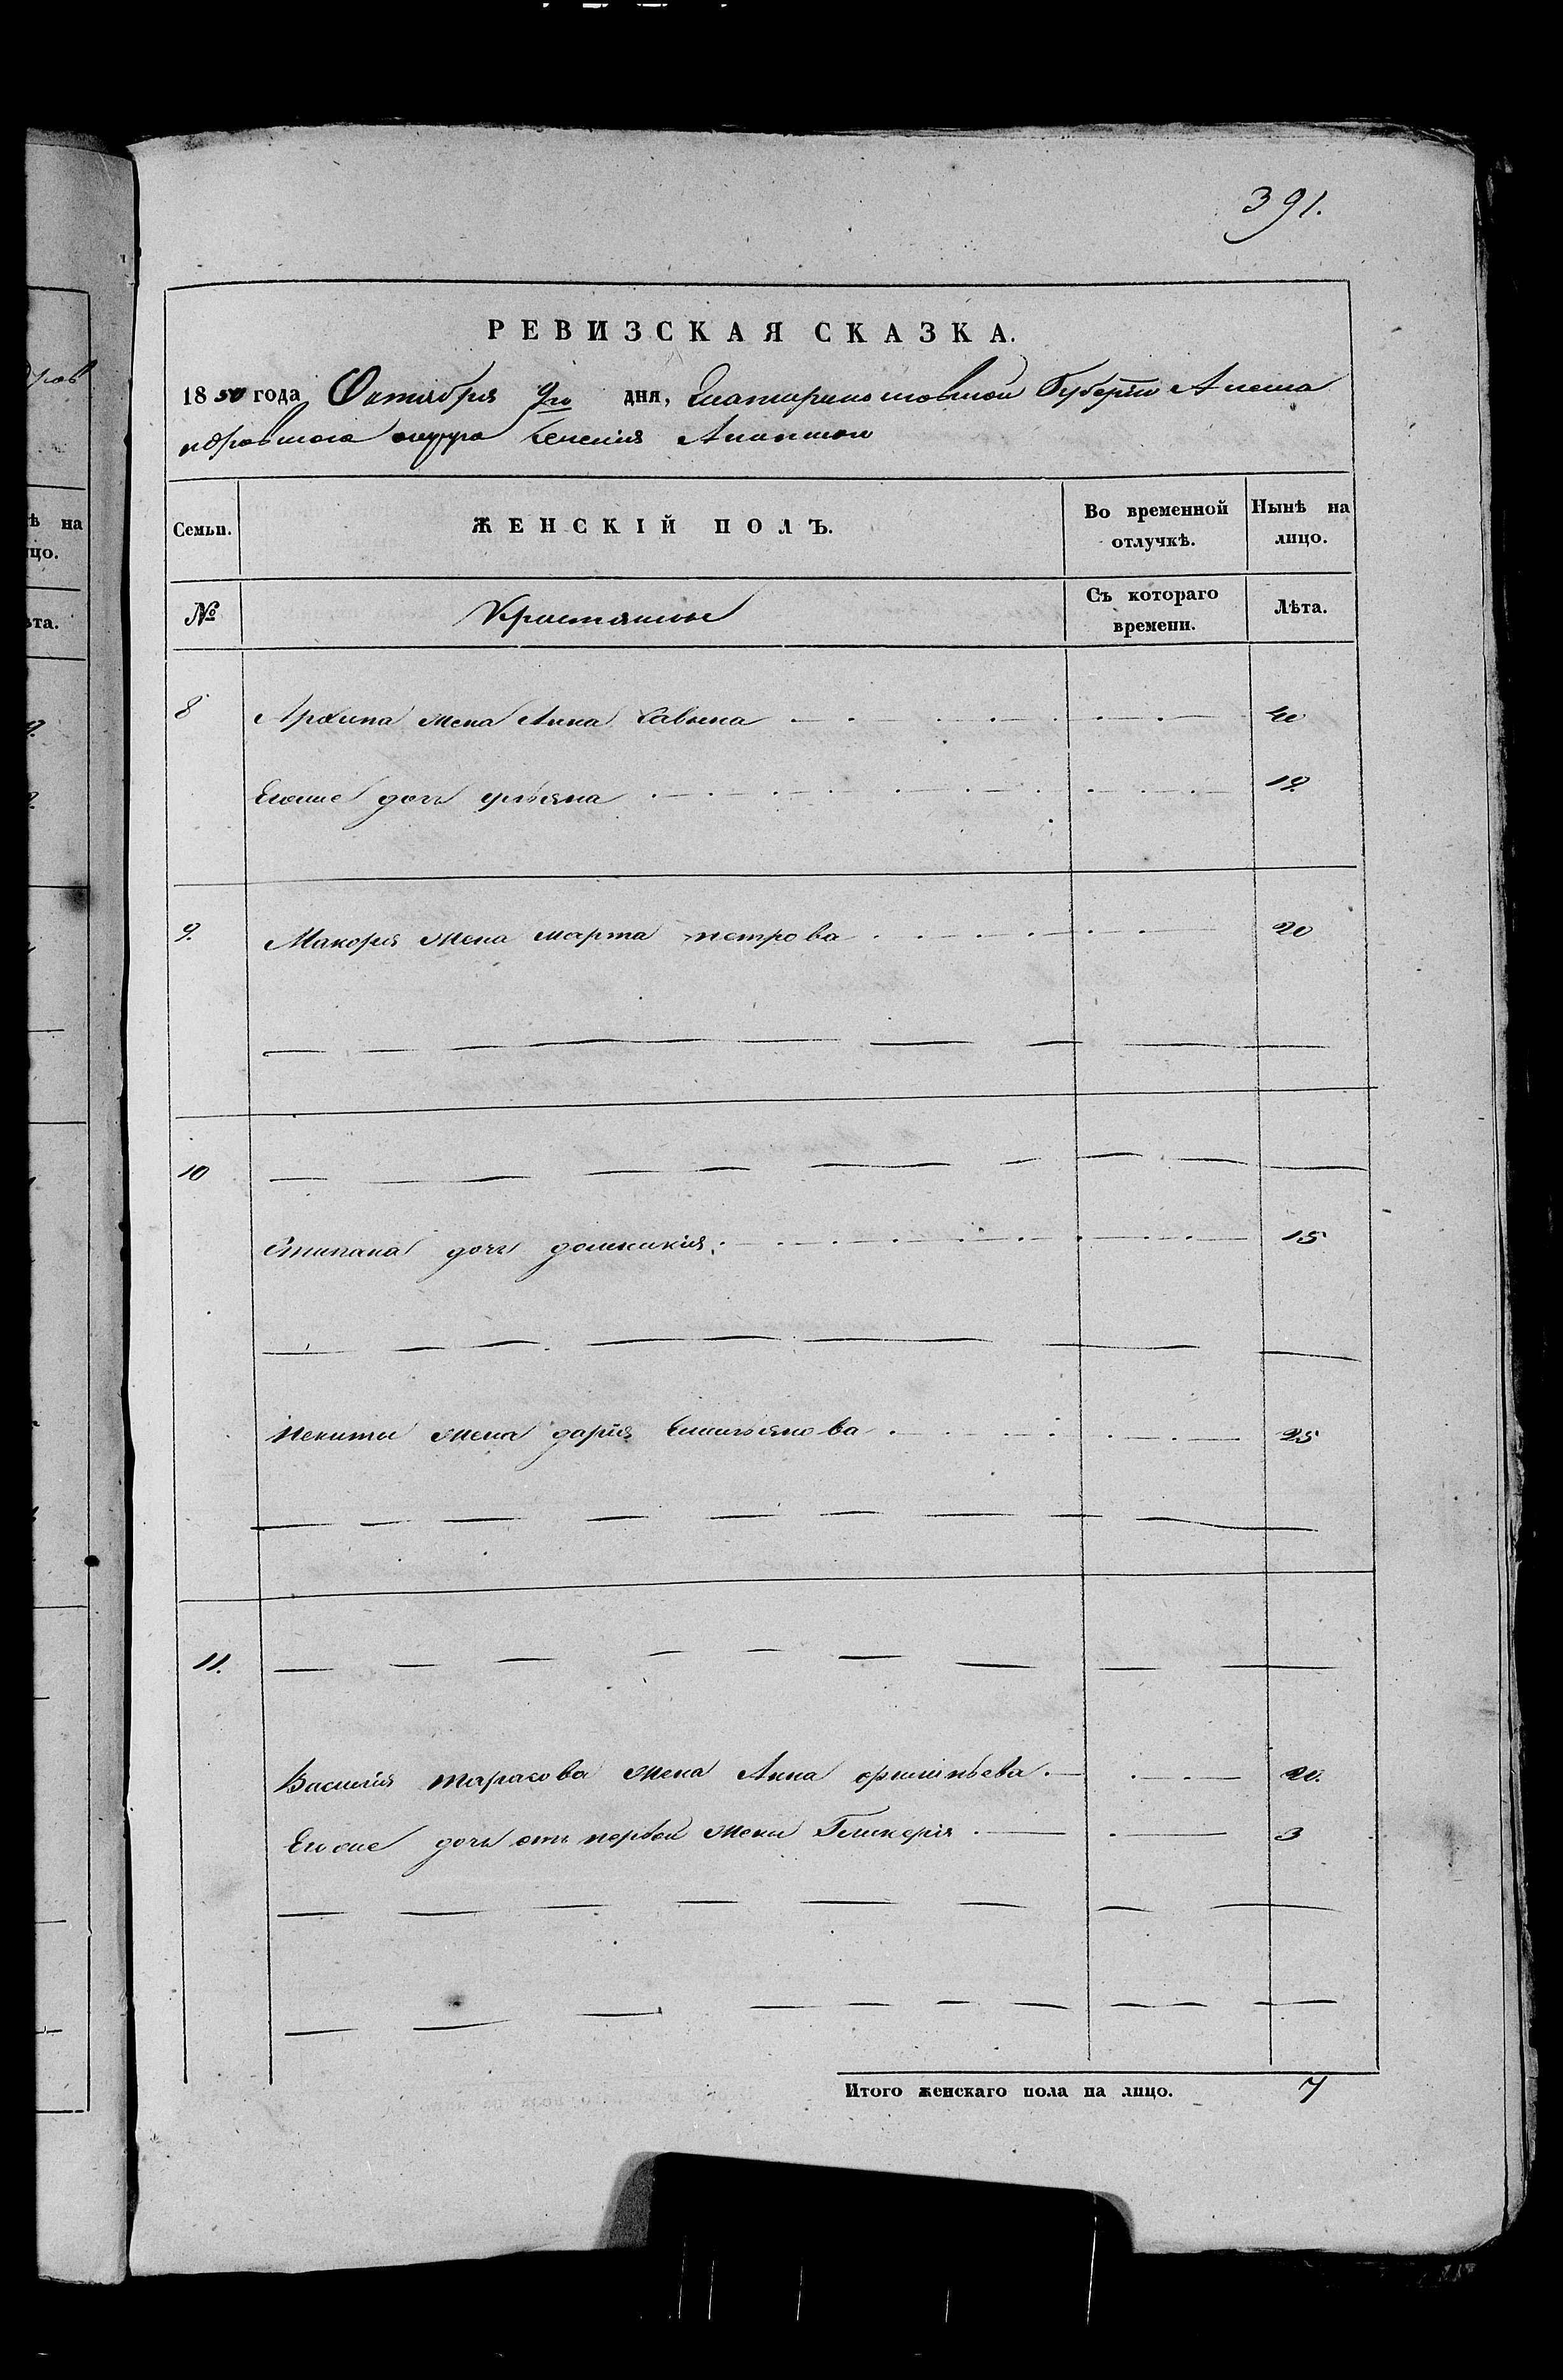 391.
РЕВИЗСКАЯ СКАЗКА.
1850 года Октября 9го дня, Екатиринославской Губерніи Алекса
ндровскаго округа Селенія
Семьи. ЖЕНСКІЙ ПОЛЪ. Во временной отлучкѣ. Нынѣ на лицо.
№ Съ котораго времени. Лѣта.
8 Архипа жена Анна Савына 40
Егоже дочь 19.
9. Макория жена марта петрова 20
10
Стипана дочь домникия 15
Никиты жена дарія Емильянова 25
11.
Василія тарасова жена Анна 20.
Егоже дочь отъ первой жены Гликерія 3
Итого женскаго пола на лицо. 7
ѣ на
цо.
ѣта.